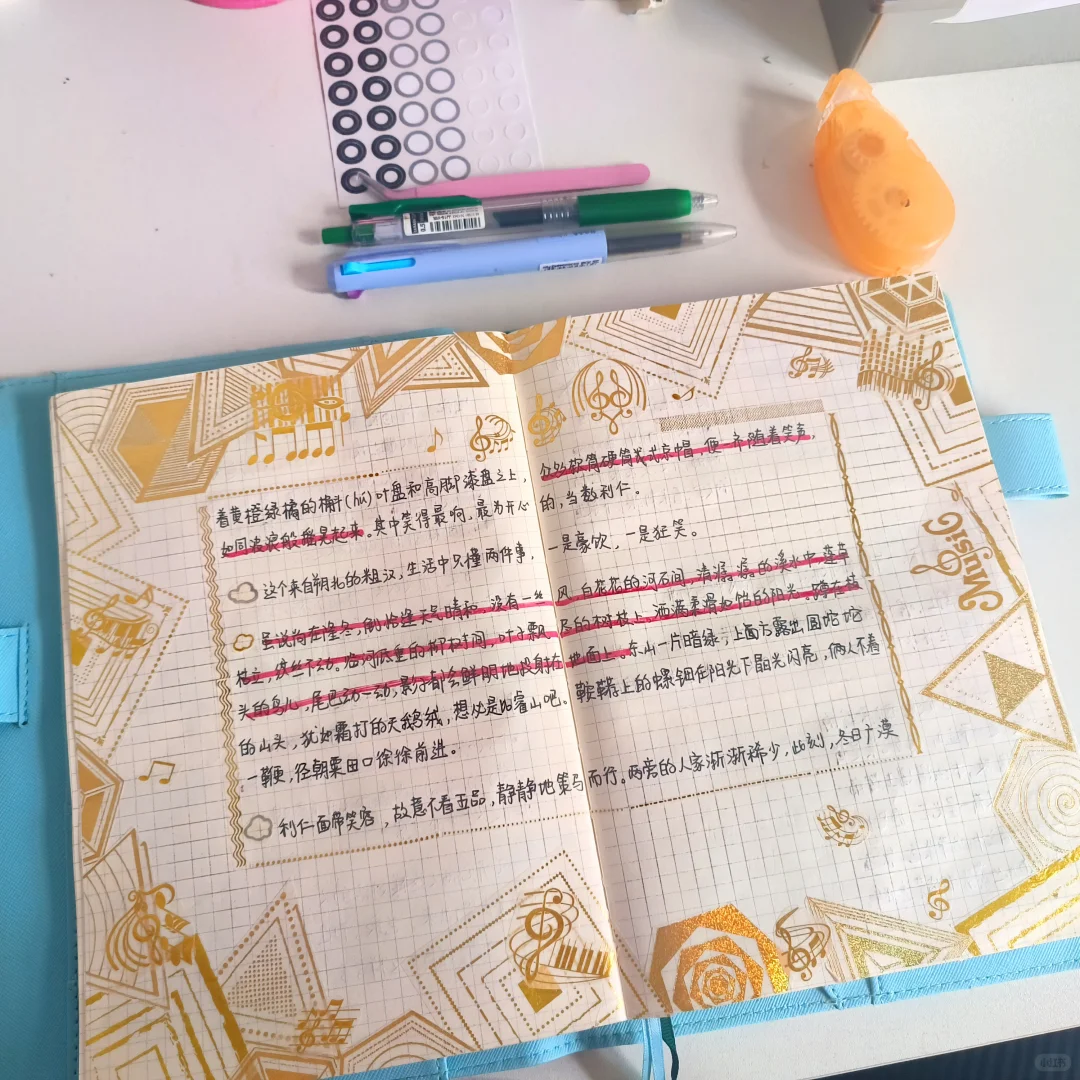 着黄橙绿橘的槲(hú)叶盘和高脚漆盘之上,众多软筒硬筒武士京帽,便一齐随着笑声,
如同波浪般摇晃起来。其中笑得最响,最为开心的,当数利仁。
这个来自朔北的粗汉,生活中只懂两件事,一是豪饮,一是狂笑。
虽说尚在隆冬,恰逢天气晴和,没有一丝风。白花花的河石间,清潺潺的溪水中,蓬草
枯立,纹丝不动。临河低垂的柳树间,叶子飘尽的树枝上,洒满柔滑如饴的阳光,蹲在枝
头的鸟儿,尾巴动一动,影子都会鲜明地投射在地面上。东山一片暗绿,上面方露出圆陀陀
的山头,犹如霜打的天鹅绒,想必是比睿山吧。鞍鞯上的螺钿在阳光下晶光闪亮,俩人不着
一鞭,径朝粟田口徐徐前进。
利仁面带笑容,故意不看五品,静静地策马而行。两旁的人家渐渐稀少,此刻,冬日广漠
Music